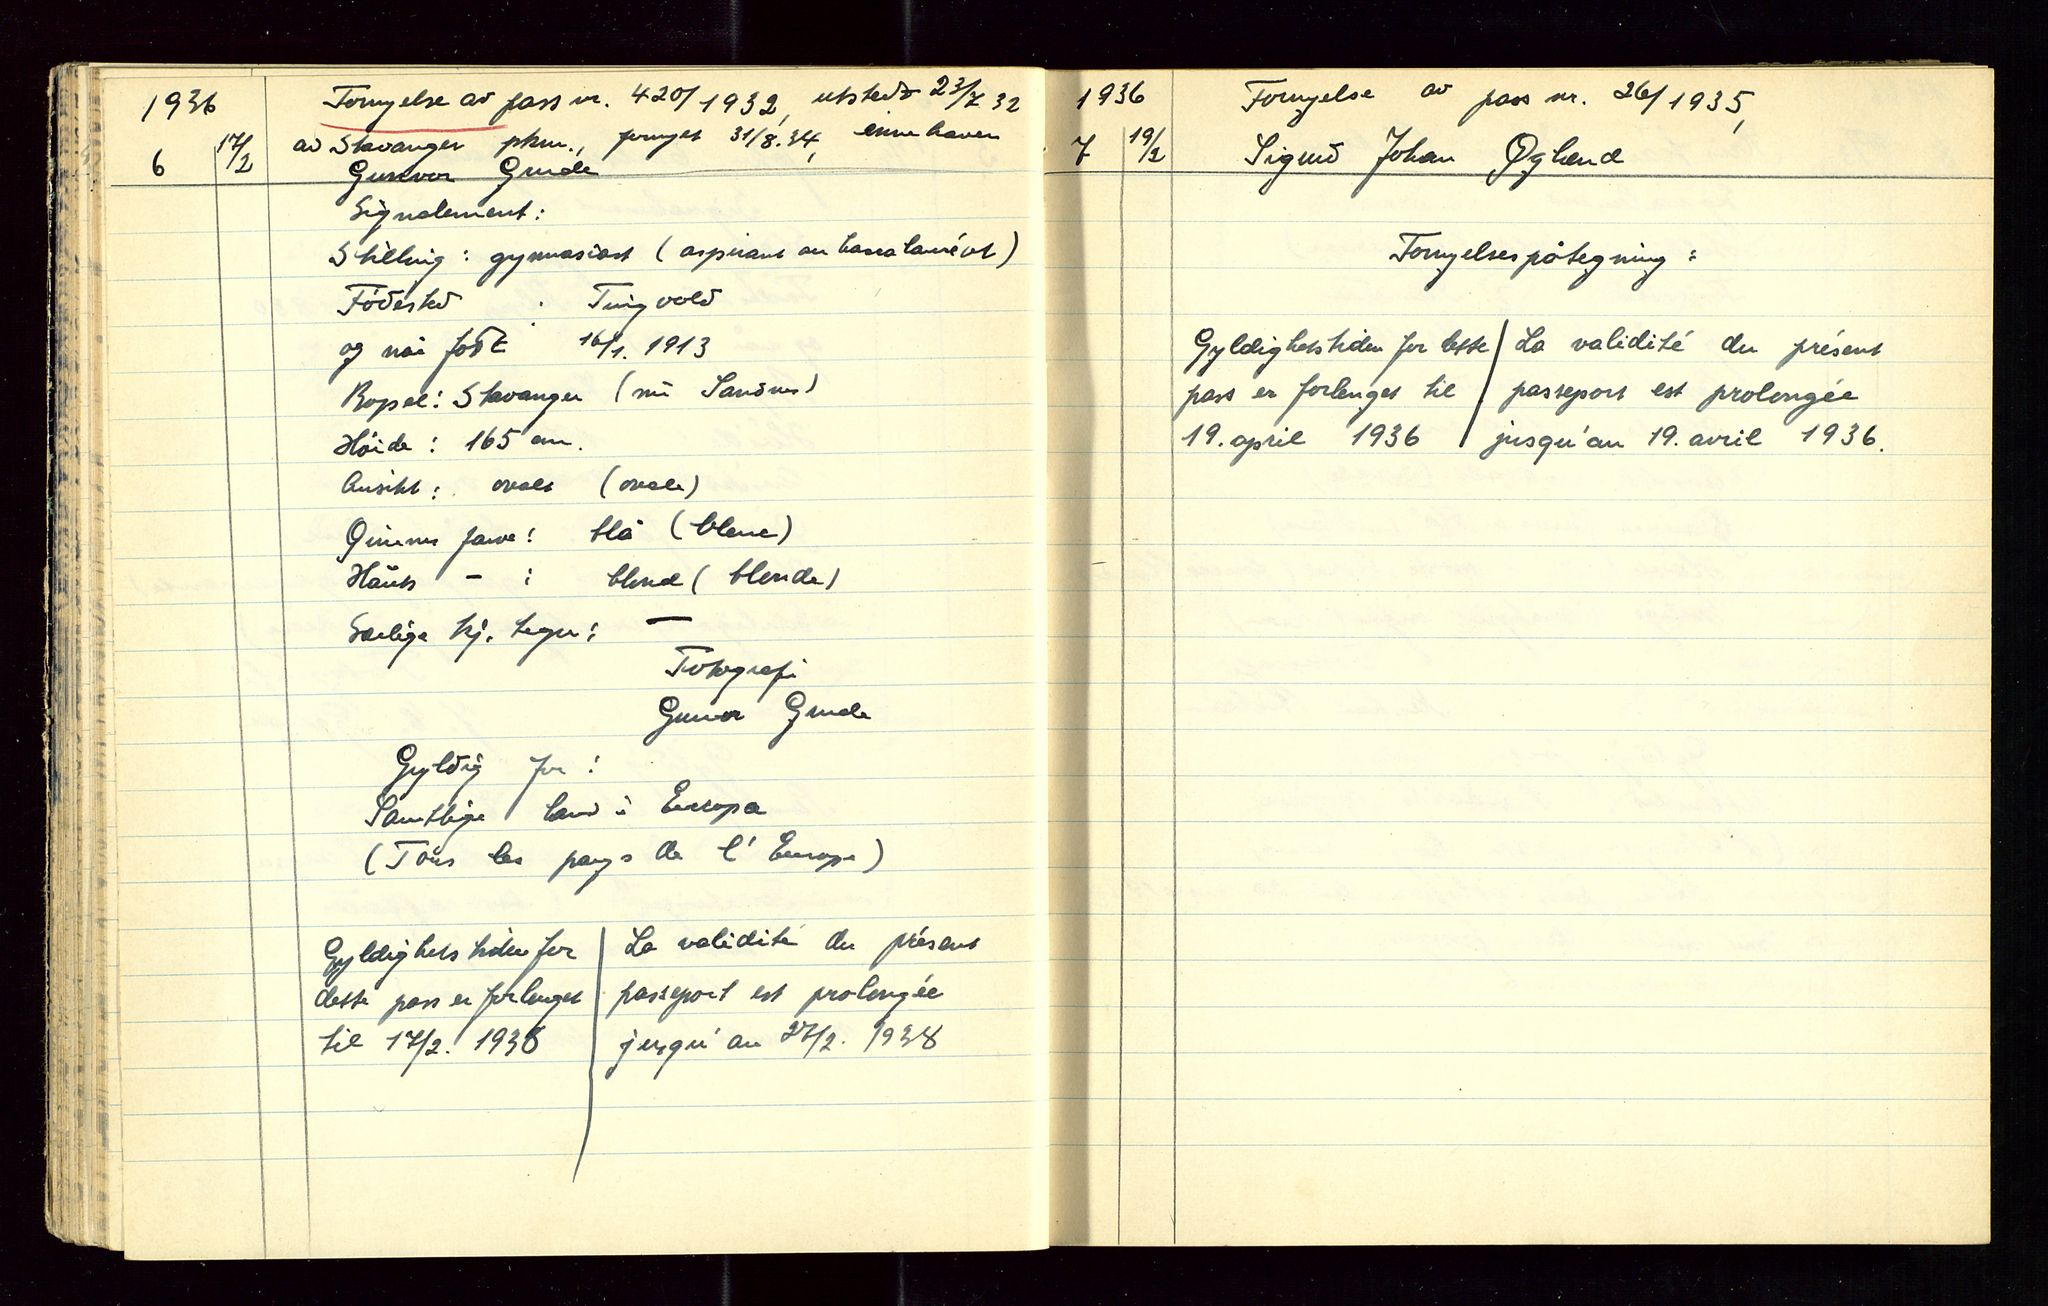 1936
6 17/2
Fornyelse av pass nr. 420/1932, utstedt 23/7 32
av Stavanger pkm., fornyet 31/8.34, innehaver
Gunvor Grude
Signalement:
Stilling: gymnasiast (aspirant au baccalauréat)
Födested : Tingvold
og når født 16/1. 1913
Bopæl: Stavanger (nu Sandnes)
Höide: 165 cm.
Ansikt: ovalt (ovale)
Öinenes farve: blå (bleue)
Hårets – : blond (blonde)
Særlige kj. tegn: —
Fotografi
Gunvor Grude
Gyldig for:
Samtlige land i Europa
(Tous les pays de l'Europe)
Gyldighetstiden for
dette pass er forlenget
til 17/2. 1938
La validité du présent
passeport est prolongée
jusqu'au 27/2. 1938
1936
7 19/2
Fornyelse av pass nr. 26/1935,
Sigurd Johan Øgland
Fornyelsespåtegning:
Gyldighetstiden for dette
pass er forlenget til
19. april 1936
La validité du présent
passeport est prolongée
jusqu'au 19. avril 1936.